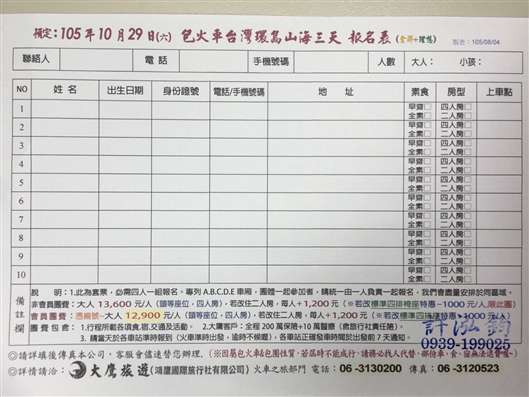 預定：105年10月29日(六) 包火車台灣環島山海三天 報名表
製表：105/08/04
聯絡人 電話 手機號碼 人數 大人： 小孩：
NO 姓名 出生日期 身份證號 電話/手機號碼 地址 素食 房型 上車點
1 早齋□ 四人房□
全素□ 二人房□
2 早齋□ 四人房□
全素□ 二人房□
3 早齋□ 四人房□
全素□ 二人房□
4 早齋□ 四人房□
全素□ 二人房□
5 早齋□ 四人房□
全素□ 二人房□
6 早齋□ 四人房□
全素□ 二人房□
7 早齋□ 四人房□
全素□ 二人房□
8 早齋□ 四人房□
全素□ 二人房□
9 早齋□ 四人房□
全素□ 二人房□
10 早齋□ 四人房□
全素□ 二人房□
備註欄
說 明：1.此為套票，必需四人一組報名，專列 A.B.C.D.E 車廂，團體一起參加者，請統一由一人負責一起報名，我們會盡量安排於同區域。
非會員團費：大人 13,600元/人 (頭等座位，四人房)，若改住二人房，每人+1,200元 (※若改標準四排椅座特惠-1000元/人,限此團)
會員團費：憑廟號→ 12,900元/人 (頭等座位，四人房)，若改住二人房，每人+1,200元 (※若改標準四排座特惠-1000元/人)
團費包含：1.行程所載各項食.宿.交通及活動。 2.大鷹客戶：全程200萬保險+10萬醫療 (為旅行社責任險)。
3.請當天於各車站準時報到 (火車準時出發，逾時不候喔)，各車站正確發車時間於出發前7天通知。
計泓鈞
0939-199025
◎請詳填後傳真本公司，客服會儘速替您辦理。(※因屬包火車&包團性質，若屆時不能成行，請務必找人代替，部份車、食、宿無法退費喔~)
◎詳情請洽： 大鷹旅遊 (鴻璽國際旅行社有限公司) 火車之旅部門 電話：06-3130200 傳真：06-3120523